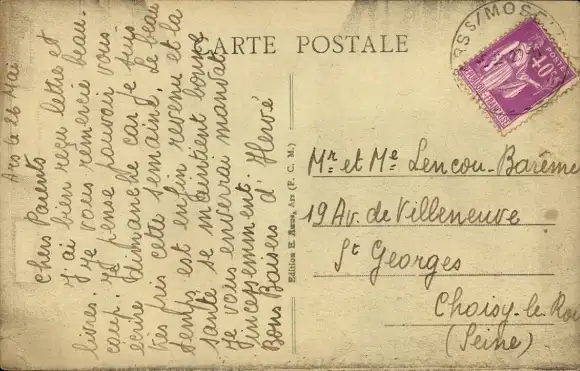 CARTE POSTALE
Ars le 26 Mai
Chers Parents
J'ai bien reçu lettre et
livres. Je vous remercie beau-
coup. Je pense pouvoir vous
écrire dimanche car je suis
très pris cette semaine. Le beau
temps est enfin revenu et la
santé se maintient bonne
Je vous enverrai mandat
incessemment.
Bons Baisers d'Hervé
Edition H. Ars (P. C. M.)
ARS S/MOSELLE
POSTES
40c
RÉPUBLIQUE FRANÇAISE
Mr et Me Lencou-Barème
19 Av. de Villeneuve
St Georges
Choisy-le-Roi
(Seine)